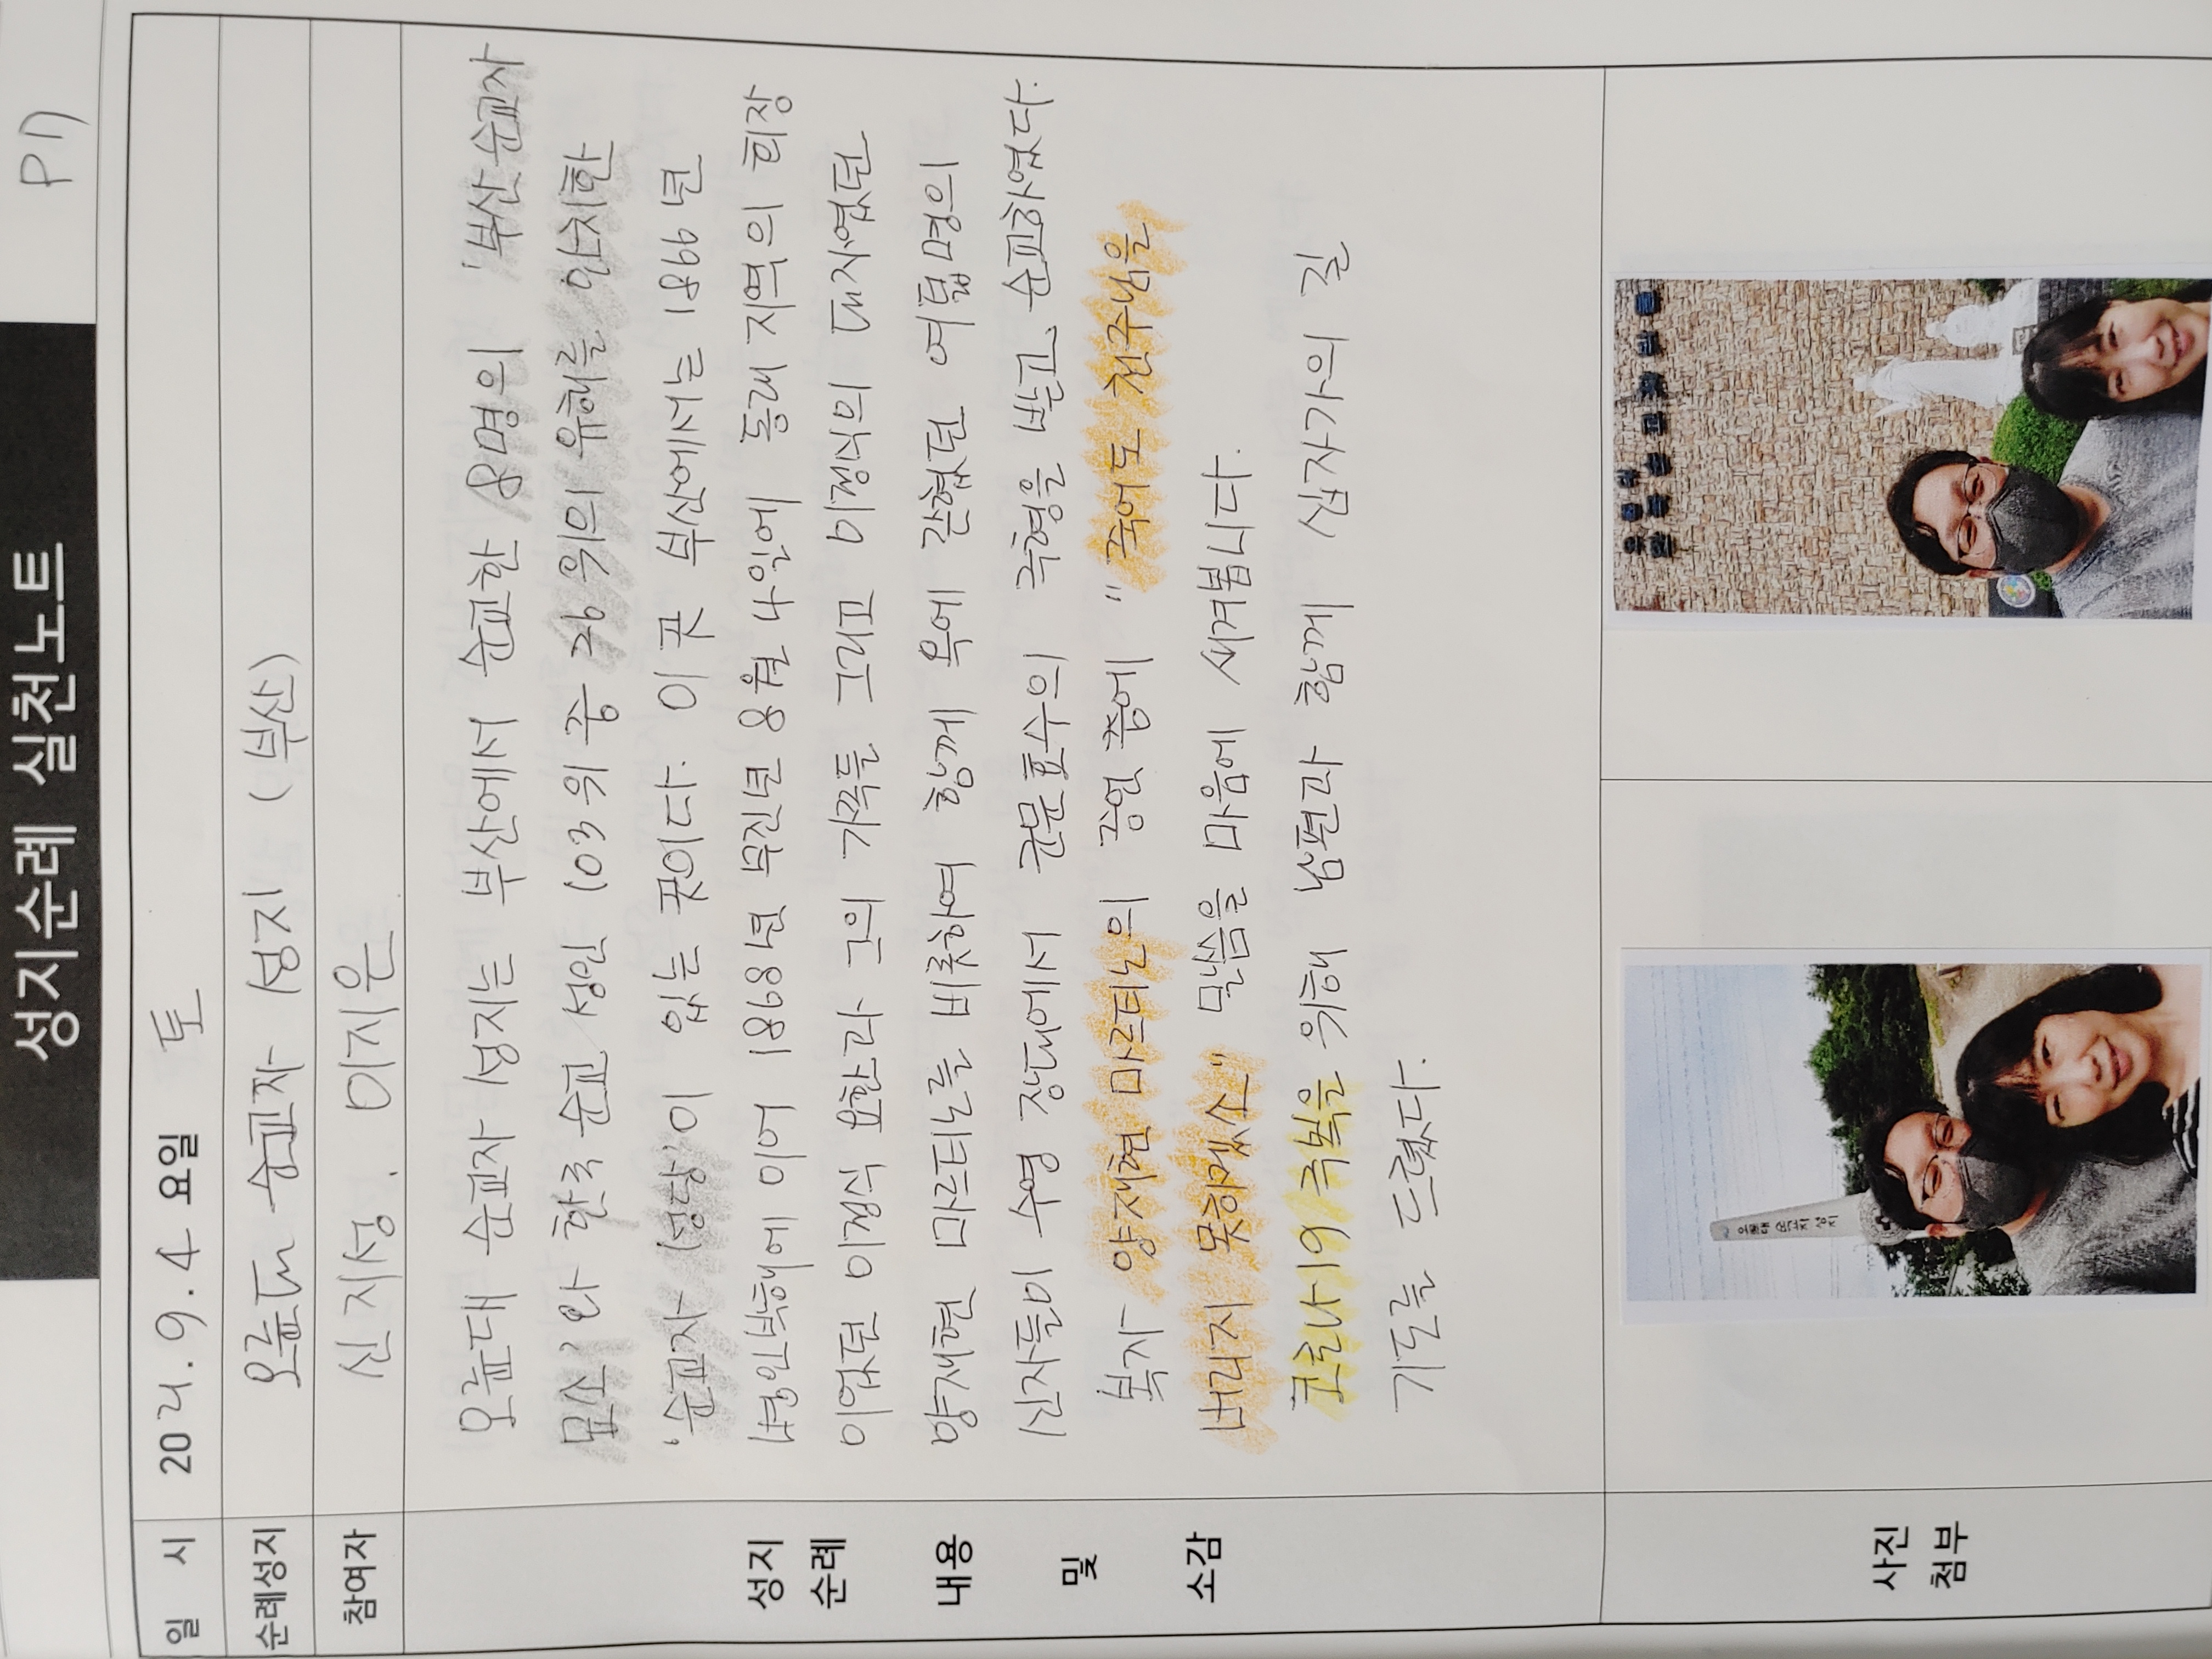 성지순례 실천노트
P17
일 시 2021. 9. 4 요일 토
순례성지 오륜대 순교자 성지 (부산)
참여자 신지성. 이지은
성지
순례
내용
및
소감
오륜대 순교자 성지는 부산에서 순교한 8명의 '부산 순교자
묘소'와 한국 순교 성인 103위 중 26위의 유해를 안치한
'순교자 성당'이 있는 곳이다. 이 곳 부산에서는 1866년
병인박해에 이어 1868년 무진년 8월 4일에 동래 지역의 회장
이었던 이정식 요한과 그의 가족들 그리고 이정식의 대자였던
양재현 마르티노를 비롯하여 함께 옥에 갇혔던 여덟명의
신자들이 수영 장대에서 군문효수의 극형을 받고 순교하였다.
복자 양재현 마르티노의 증언 중에 "죽어도 천주님을
버리지 못하겠소" 말씀을 마음에 새겨봅니다.
코로나19 극복을 위해 남편과 함께 십자가의 길
기도를 드렸다.
사진
첨부
오륜대 순교자 성지